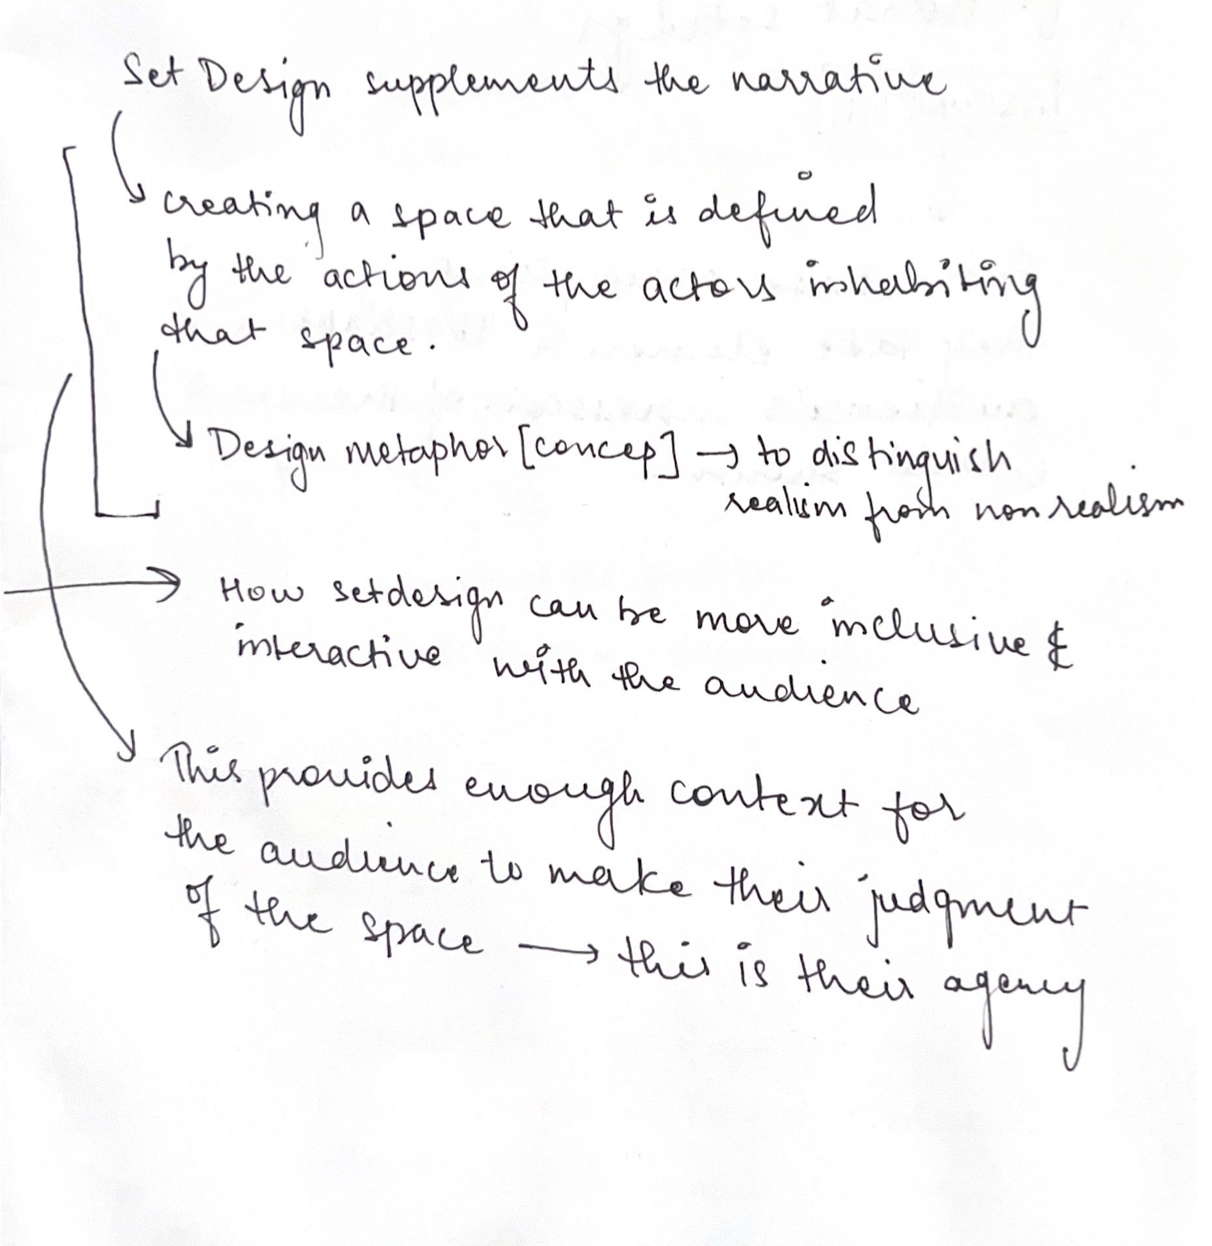 Set Design supplements the narrative
creating a space that is defined
by the actions of the actors inhabiting
that space.
Design metaphor [concep] → to distinguish
realism from nonrealism
How setdesign can be more inclusive &
interactive with the audience
This provides enough context for
the audience to make their judgment
of the space → this is their agency